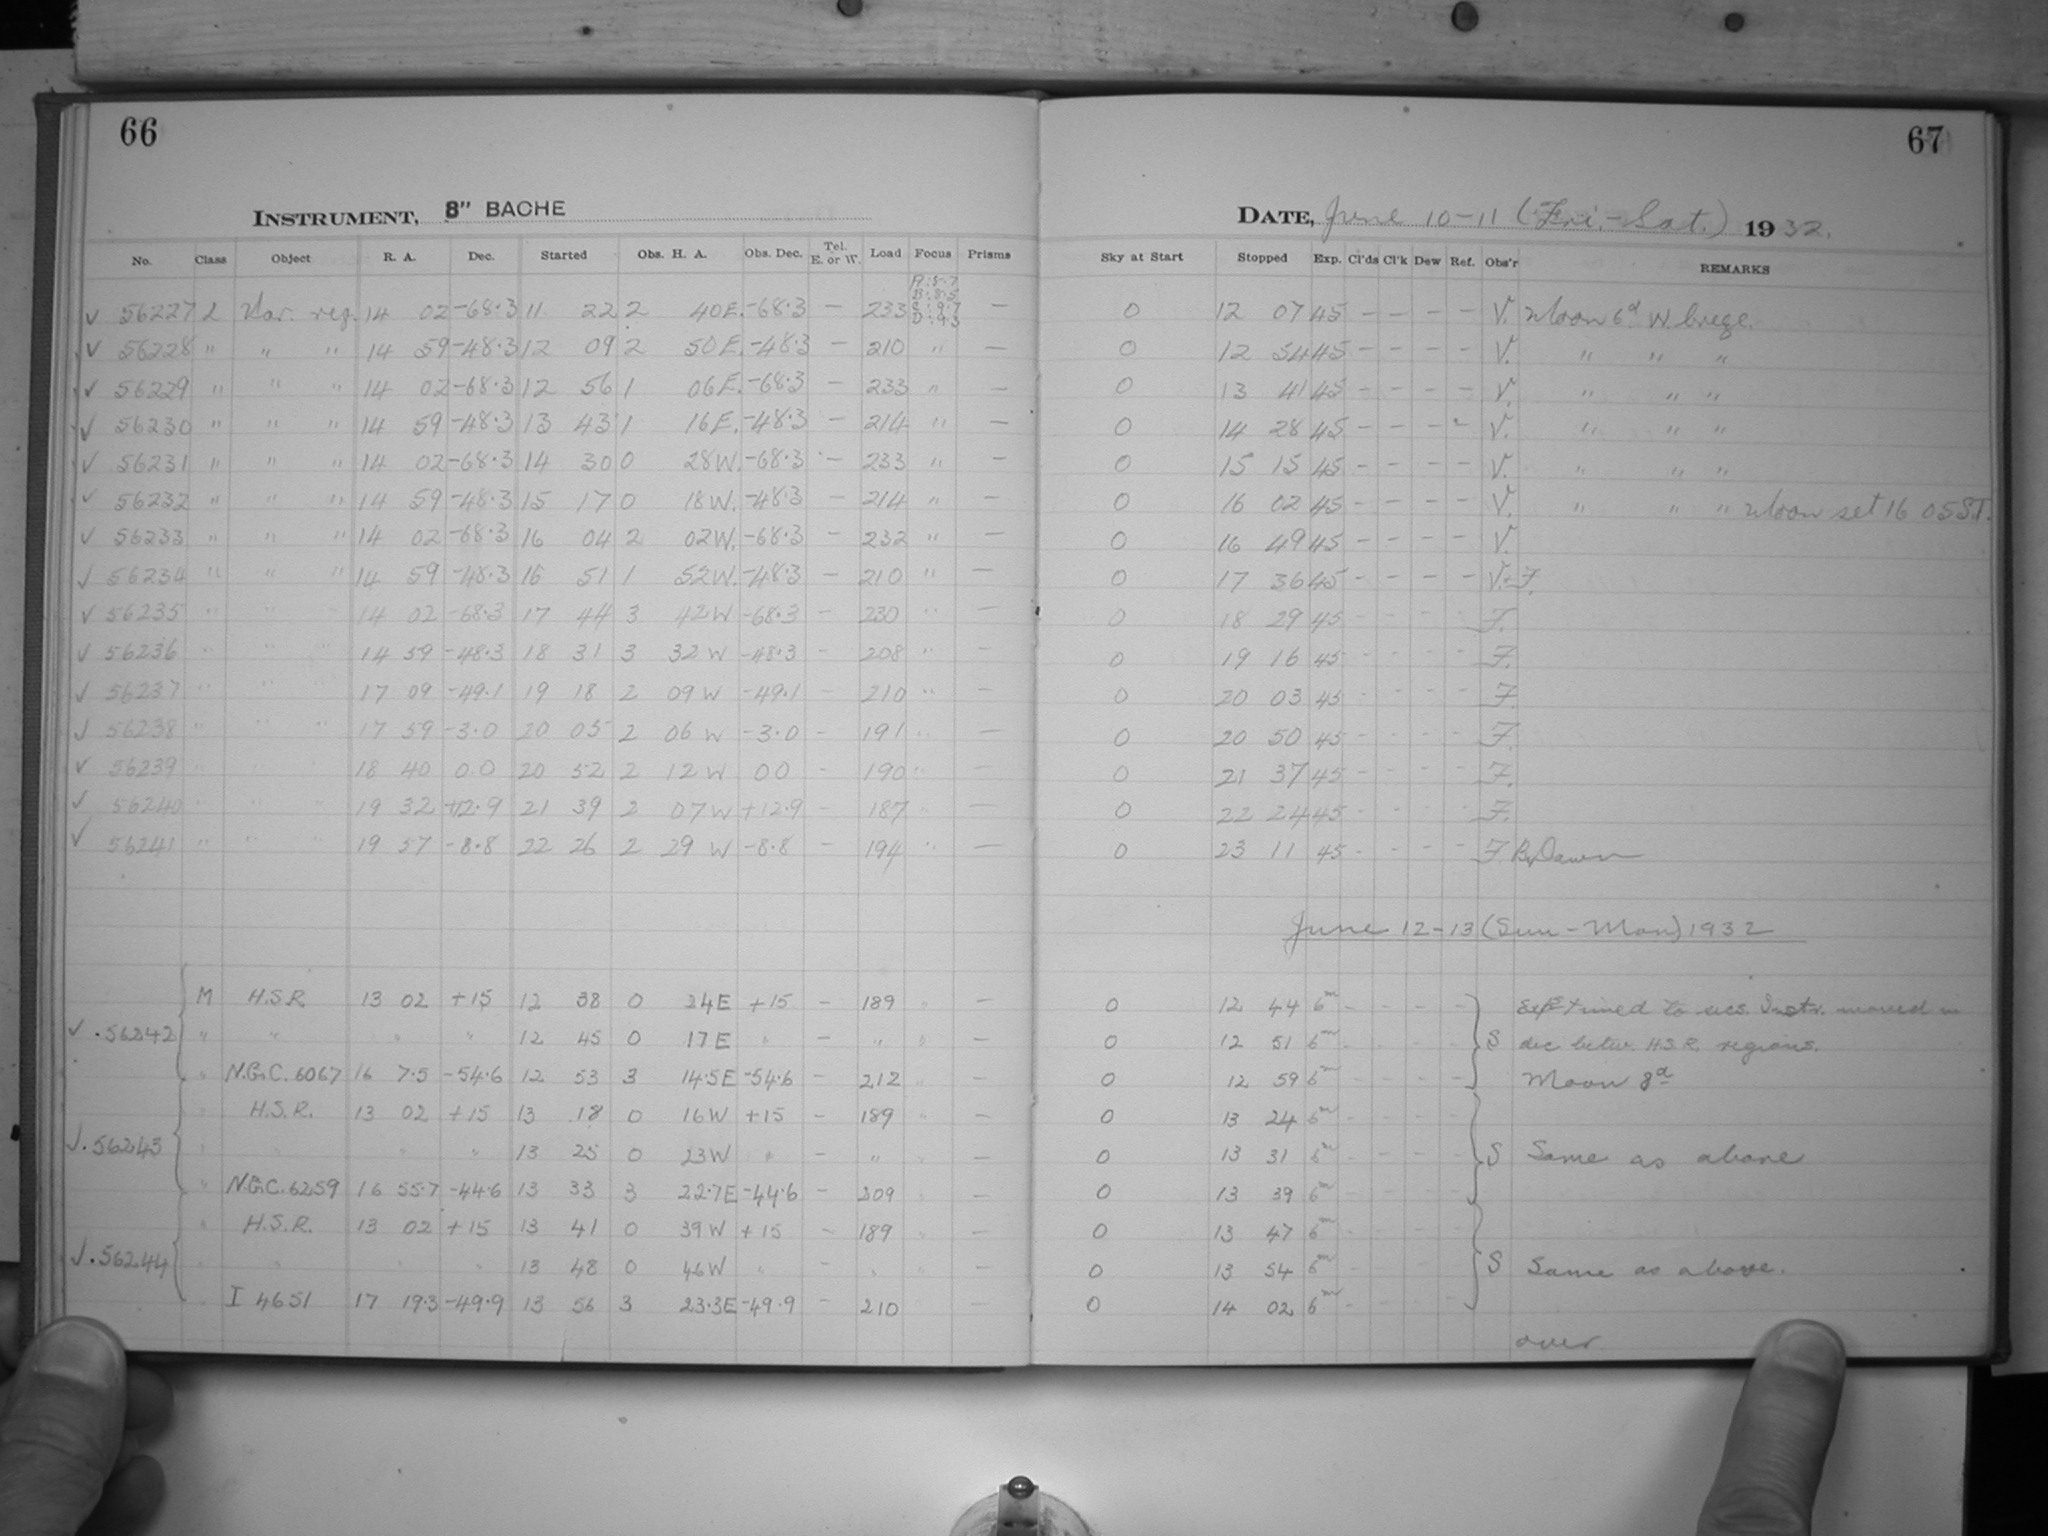 66
INSTRUMENT, 8" BACHE
No. Class Object R. A. Dec. Started Obs. H. A. Obs. Dec. Tel. E. or W. Load Focus Prisms
✓ 56227 L Var. reg. 14 02 -68.3 11 22 2 40E. -68.3 - 233 -
✓ 56228 " " " 14 59 -48.3 12 09 2 50E. -48.3 - 210 " -
✓ 56229 " " " 14 02 -68.3 12 56 1 06E. -68.3 - 233 " -
✓ 56230 " " " 14 59 -48.3 13 43 1 16E. -48.3 - 214 " -
✓ 56231 " " " 14 02 -68.3 14 30 0 28W. -68.3 - 233 " -
✓ 56232 " " " 14 59 -48.3 15 17 0 18W. -48.3 - 214 " -
✓ 56233 " " " 14 02 -68.3 16 04 2 02W. -68.3 - 232 " -
✓ 56234 " " " 14 59 -48.3 16 51 1 52W. -48.3 - 210 " -
✓ 56235 " " " 14 02 -68.3 17 44 3 42W -68.3 - 230 " -
✓ 56236 " " " 14 59 -48.3 18 31 3 32W -48.3 - 208 " -
✓ 56237 " " " 17 09 -49.1 19 18 2 09W -49.1 - 210 " -
✓ 56238 " " " 17 59 -3.0 20 05 2 06W -3.0 - 191 " -
✓ 56239 " " " 18 40 0.0 20 52 2 12W 00 - 190 " -
✓ 56240 " " " 19 32 +12.9 21 39 2 07W +12.9 - 187 " -
✓ 56241 " " " 19 57 -8.8 22 26 2 29W -8.8 - 194 " -
M H.S.R. 13 02 +15 12 38 0 24E +15 - 189 " -
✓.56242 " " " " 12 45 0 17E " - " " -
" N.G.C. 6067 16 7.5 -54.6 12 53 3 14.5E -54.6 - 212 " -
" H.S.R. 13 02 +15 13 18 0 16W +15 - 189 " -
✓.56243 " " " " 13 25 0 23W " - " " -
" N.G.C. 6259 16 55.7 -44.6 13 33 3 22.7E -44.6 - 209 " -
" H.S.R. 13 02 +15 13 41 0 39W +15 - 189 " -
✓.56244 " " " " 13 48 0 46W " - " " -
" I 4651 17 19.3 -49.9 13 56 3 23.3E -49.9 - 210 -
67
DATE, June 10-11 (Fri.-Sat.) 1932.
Sky at Start Stopped Exp. Cl'ds Cl'k Dew Ref. Obs'r REMARKS
0 12 07 45 - - - - V. Moon 6d W
0 12 54 45 - - - - V. " " "
0 13 41 45 - - - - V. " " "
0 14 28 45 - - - - V. " " "
0 15 15 45 - - - - V. " " "
0 16 02 45 - - - - V. " " " Moon set 16 05 S.T.
0 16 49 45 - - - - V.
0 17 36 45 - - - - V.+F.
0 18 29 45 - - - - F.
0 19 16 45 - - - - F.
0 20 03 45 - - - - F.
0 20 50 45 - - - - F.
0 21 37 45 - - - - F.
0 22 24 45 - - - - F.
0 23 11 45 - - - - F. Dawn
June 12-13 (Sun-Mon) 1932
0 12 44 6m - - - - timed to secs. Instr. moved in
0 12 51 6m - - - - S dec betw. H.S.R. regions.
0 12 59 6m - - - - Moon 8d
0 13 24 6m - - - -
0 13 31 6m - - - - S Same as above
0 13 39 6m - - - -
0 13 47 6m - - - -
0 13 54 6m - - - - S Same as above.
0 14 02 6m - - - -
over